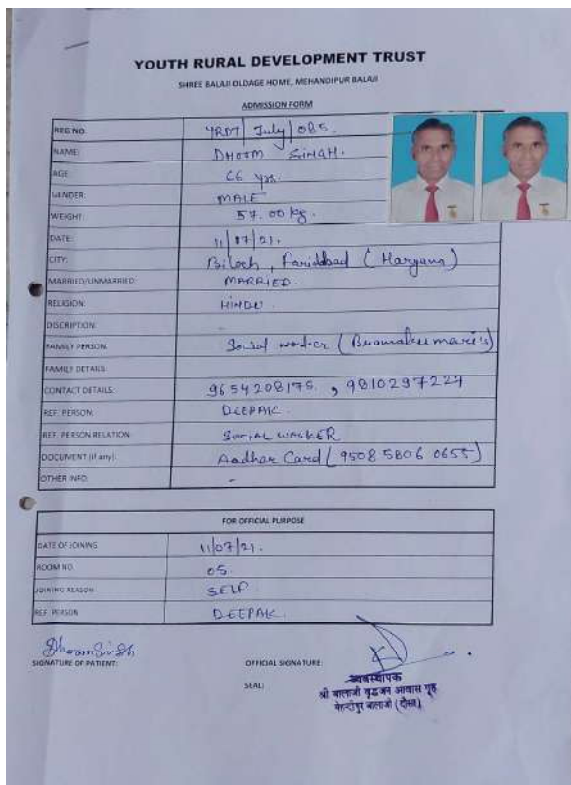 YOUTH RURAL DEVELOPMENT TRUST
SHREE BALAJI OLDAGE HOME, MEHANDIPUR BALAJI
ADMISSION FORM
REG NO. YRDT/July/085.
NAME: DHARM SINGH.
AGE: 66 yrs.
GENDER: MALE
WEIGHT: 57.00 kg.
DATE: 11/07/21.
CITY: Biloch, Faridabad (Haryana)
MARRIED/UNMARRIED: MARRIED.
RELIGION: HINDU.
DISCRIPTION:
FAMILY PERSON: Social worker
FAMILY DETAILS:
CONTACT DETAILS: 9654208175, 9810297227
REF. PERSON: DEEPAK.
REF. PERSON RELATION: SOCIAL WALKER
DOCUMENT (if any): Aadhar Card (9508 5806 0655)
OTHER INFO: -
FOR OFFICIAL PURPOSE
DATE OF JOINING 11/07/21.
ROOM NO. 05.
JOINING REASON SELF
REF. PERSON DEEPAK.
Dharam Singh
SIGNATURE OF PATIENT: OFFICIAL SIGNATURE:
SEAL:
व्यवस्थापक
श्री बालाजी वृद्धजन आवास गृह
मेहन्दीपुर बालाजी (दौसा)